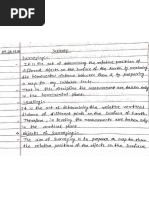 Survey
Surveying:-
It is the art of determining the relative position of
different objects on the surface of the Earth by measuring
the horizontal distance between them & by preparing
a map to any suitable scale.
Thus in this discipline the measurement are taken only
in the horizontal plane.
Levelling:-
It is the art of determining the relative vertical
distance of different points on the surface of Earth.
Therefore in levelling the measurements are taken only
in the vertical plane.
Objects of Surveying:-
The aim of surveying is to prepare a map to show
the relative positions of the objects on the surface